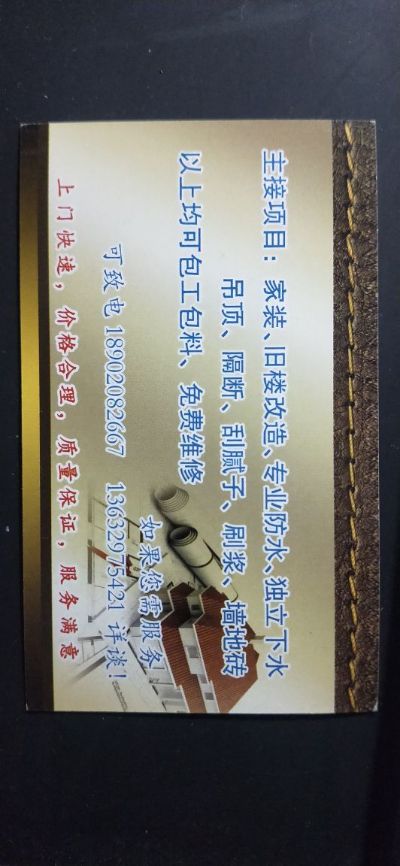 主接项目：家装、旧楼改造、专业防水、独立下水
吊顶、隔断、刮腻子、刷浆、墙地砖
以上均可包工包料、免费维修
如果您需服务
可致电 18902082667 13632975421 详谈！
上门快速，价格合理，质量保证，服务满意